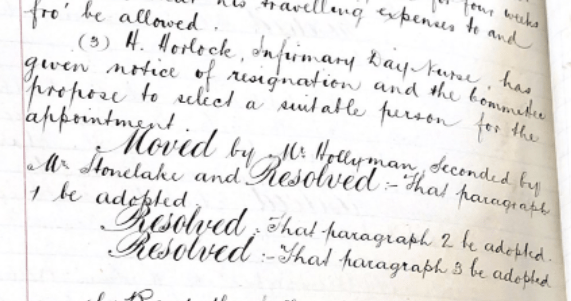 his travelling expenses to and
fro' be allowed.
(3) H. Horlock, Infirmary Day Nurse, has
given notice of resignation and the Committee
propose to select a suitable person for the
appointment.
Moved by Mr. Hollyman, seconded by
Mr. Stonelake and Resolved:- That paragraph
1 be adopted.
Resolved:- That paragraph 2 be adopted.
Resolved:- That paragraph 3 be adopted